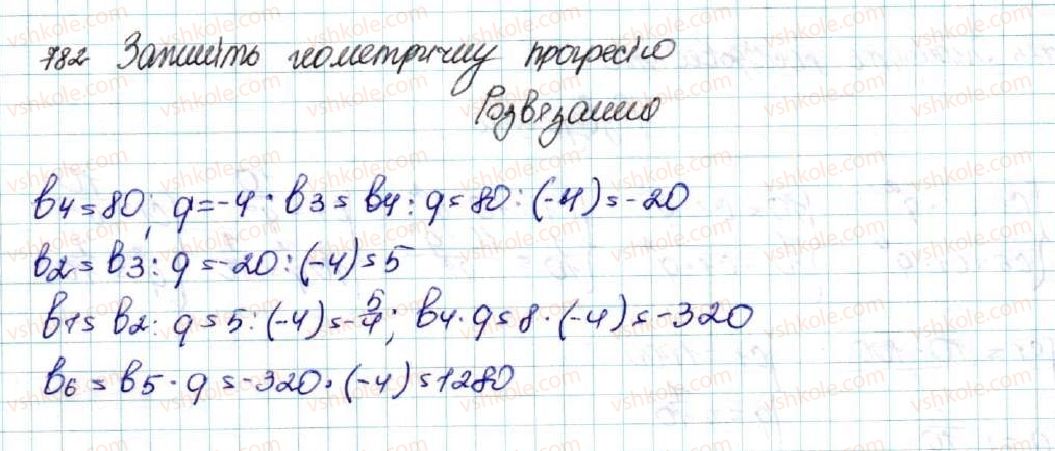 782 Запишіть геометричну прогресію
Розвязання
b4 = 80; q = -4 · b3 = b4 : q = 80 : (-4) = -20
b2 = b3 : q = -20 : (-4) = 5
b1 = b2 : q = 5 : (-4) = -5/4; b4 · q = 8 · (-4) = -320
b6 = b5 · q = -320 · (-4) = 1280